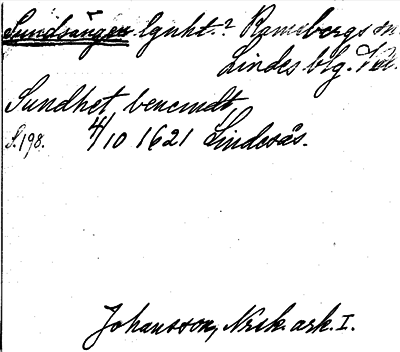 Sundsängen lgnht.? Ramsbergs sn
Lindes blg. Vstm.
Sundhet benemdt,
S.198. 4/10 1621 Lindesås.
Johansson, Norsk. ark. I.